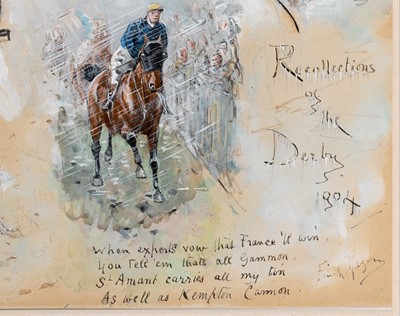 Recollections
of
the
Derby
1904
When experts vow that France 'll win,
You tell 'em thats all Gammon.
St Amant carries all my tin
As well as Kempton Cannon.